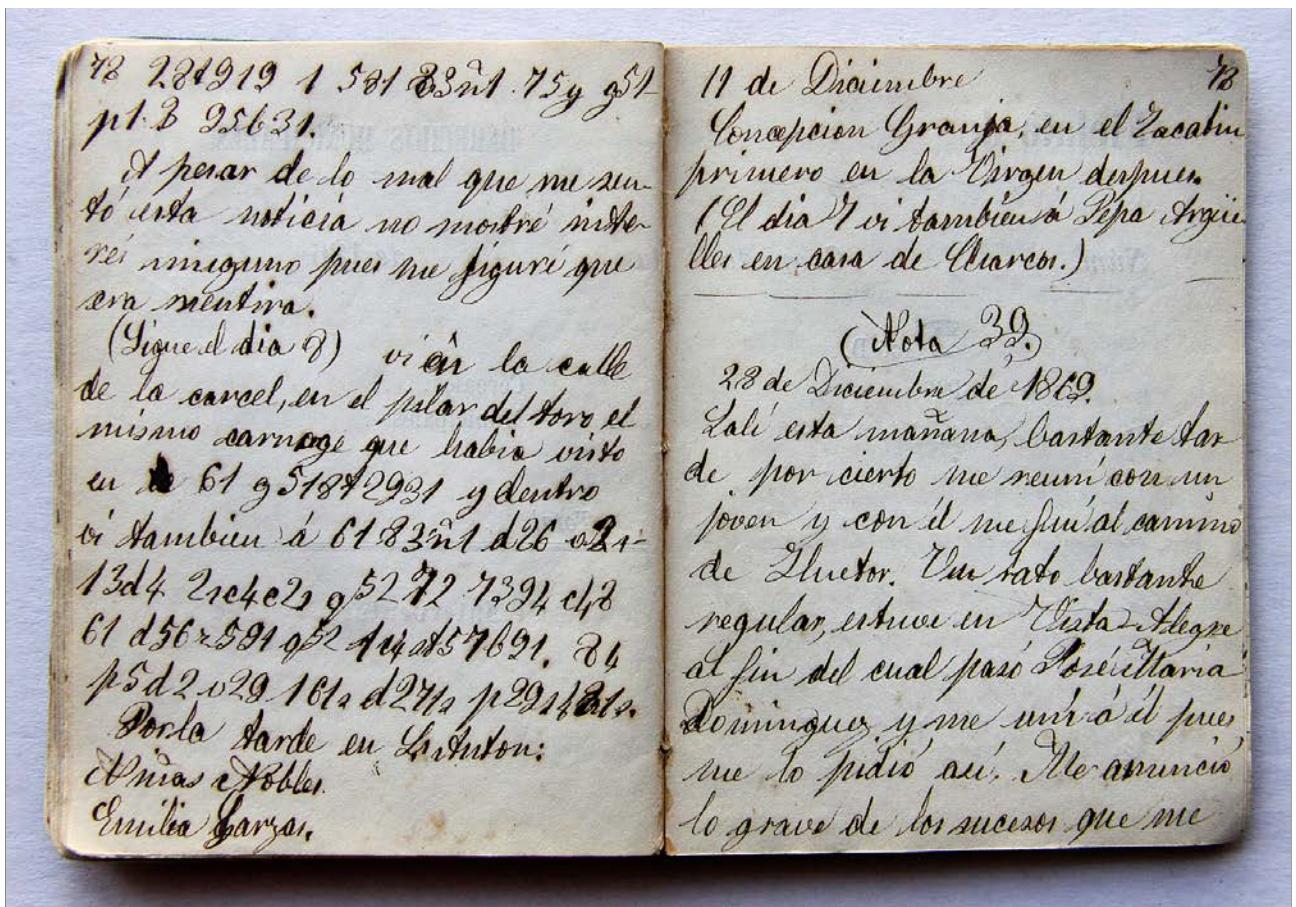 78 28t919 1 581 83ñ1. 75y g51-
p1. 3 95631.
A pesar de lo mal que me sen-
tó esta noticia no mostré inte-
rés ninguno pues me figuré que
era mentira.
(Sigue el dia 8) vi en la calle
de la carcel, en el pilar del toro el
mismo carruage que habia visto
en 61 g518t2931 y dentro
vi tambien á 61 83ñ1 d26
13d4
61
p5d2 v29 161s
Por la tarde en S. Anton:
Niñas Nobles.
Emilia Garzas.
11 de Diciembre 78
Concepcion Granja, en el Zacatin
primero en la Virgen despues.
(El dia 7 vi tambien á Pepa Argüe
lles en casa de Charcos.)
(Nota 39.)
28 de Diciembre de 1869.
Salí esta mañana, bastante tar
de por cierto me reuní con un
joven y con él me fuí al camino
de Huetor. Un rato bastante
regular, estuve en Vista-Alegre
al fin del cual pasó José Maria
Dominguez y me uní á él pues
me lo pidió así. Me anunció
lo grave de los sucesos que me